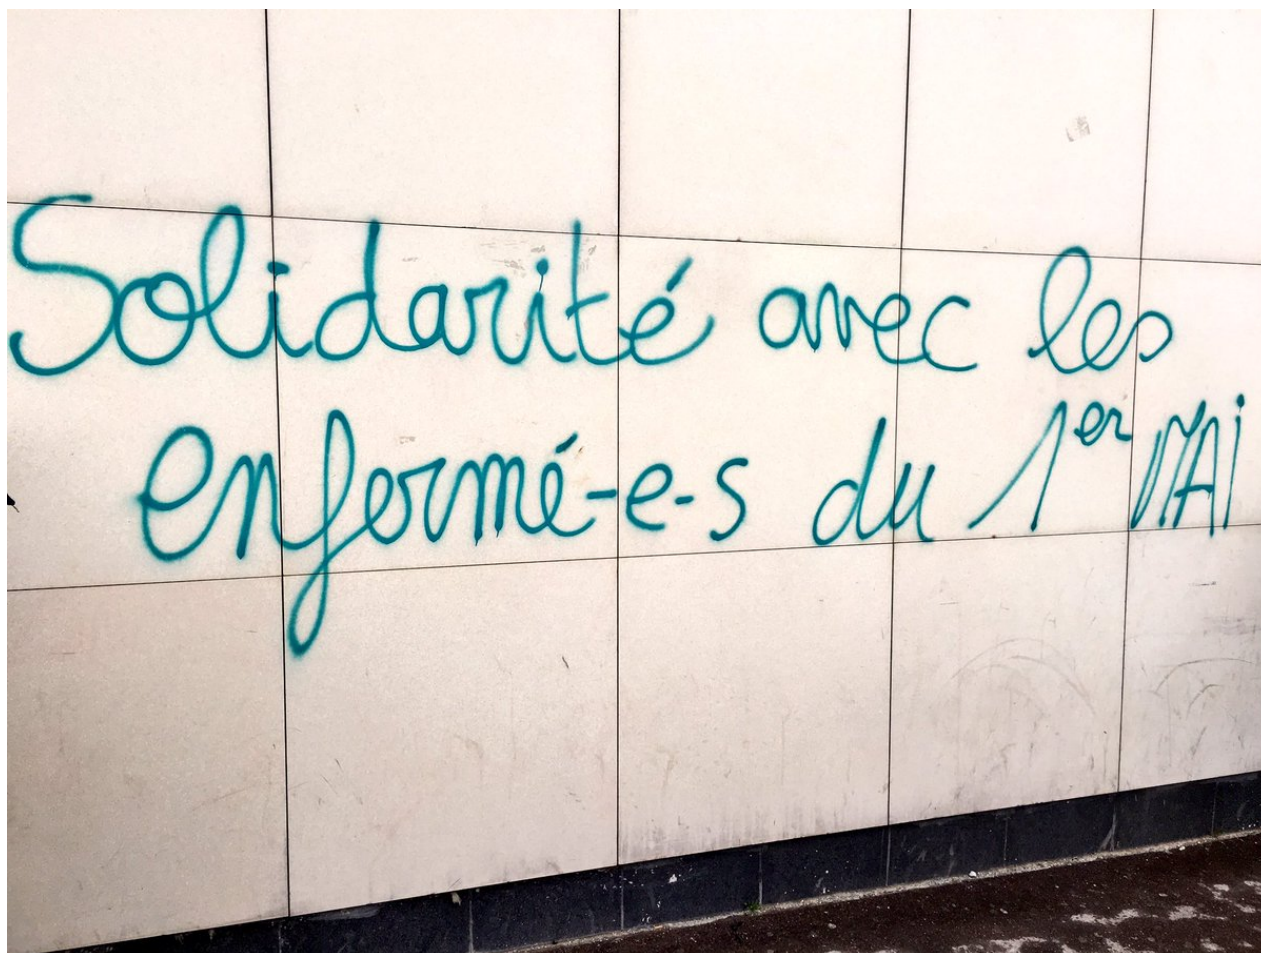 Solidarité avec les
enfermé-e-s du 1er MAi